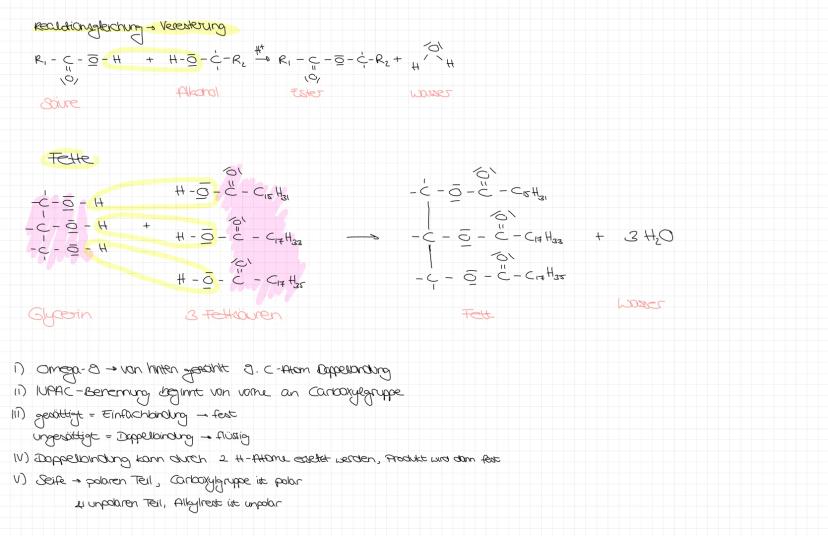 Reaktionsgleichung → Veresterung
R₁ - C - O - H + H - O - C - R₂ H⁺→ R₁ - C - O - C - R₂ + O
O O H H
Säure Alkohol Ester Wasser
Fette
- C - O - H H - O - C - C₁₅H₃₁ - C - O - C - C₁₅H₃₁
- C - O - H + H - O - C - C₁₇H₃₃ → - C - O - C - C₁₇H₃₃ + 3 H₂O
- C - O - H H - O - C - C₁₇H₃₅ - C - O - C - C₁₇H₃₅
Glycerin 3 Fettsäuren Fett Wasser
I) Omega-9 → von hinten gezählt 9. C-Atom Doppelbindung
II) IUPAC-Benennung beginnt von vorne an Carboxylgruppe
III) gesättigt = Einfachbindung → fest
ungesättigt = Doppelbindung → flüssig
IV) Doppelbindung kann durch 2 H-Atome ersetzt werden, Produkt wird dann fest
V) Seife → polaren Teil, Carboxylgruppe ist polar
↳ unpolaren Teil, Alkylrest ist unpolar